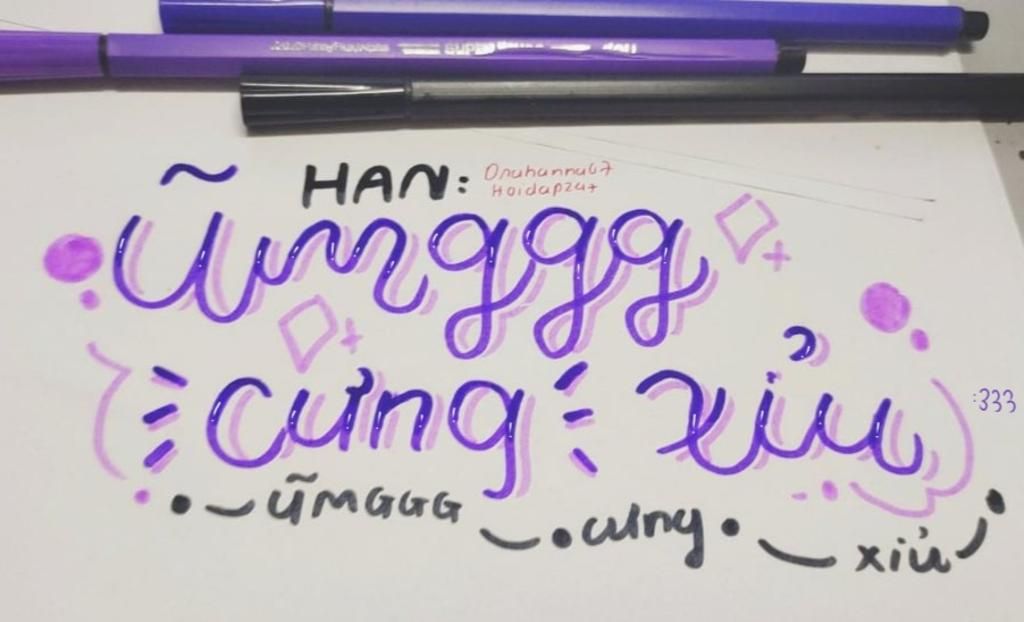 SUPER
HAN: Oruhannu67
Hoidap247
Ũmggg
cưng xỉu :333
ũmGGG cưng xỉu